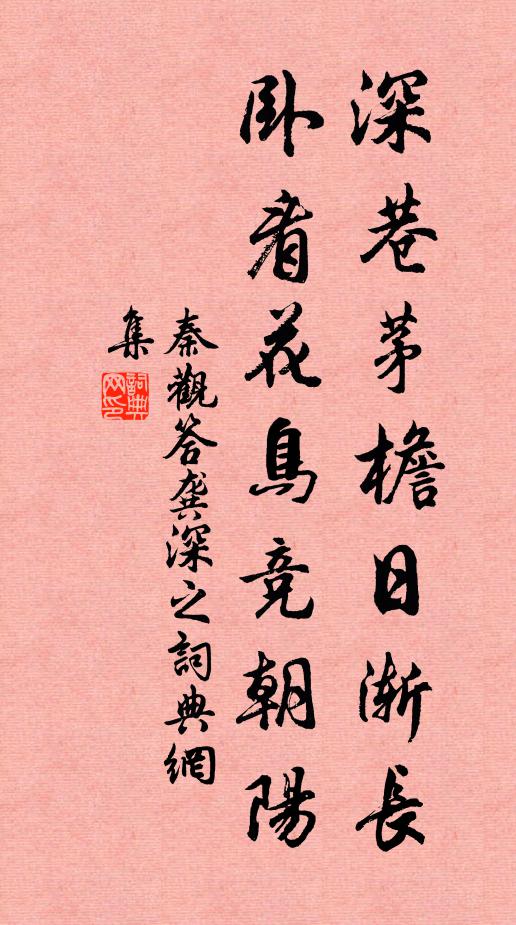 深巷茅檐日漸長
卧看花鳥競朝陽
秦觀答龔深之詞典網
集
詞典網印